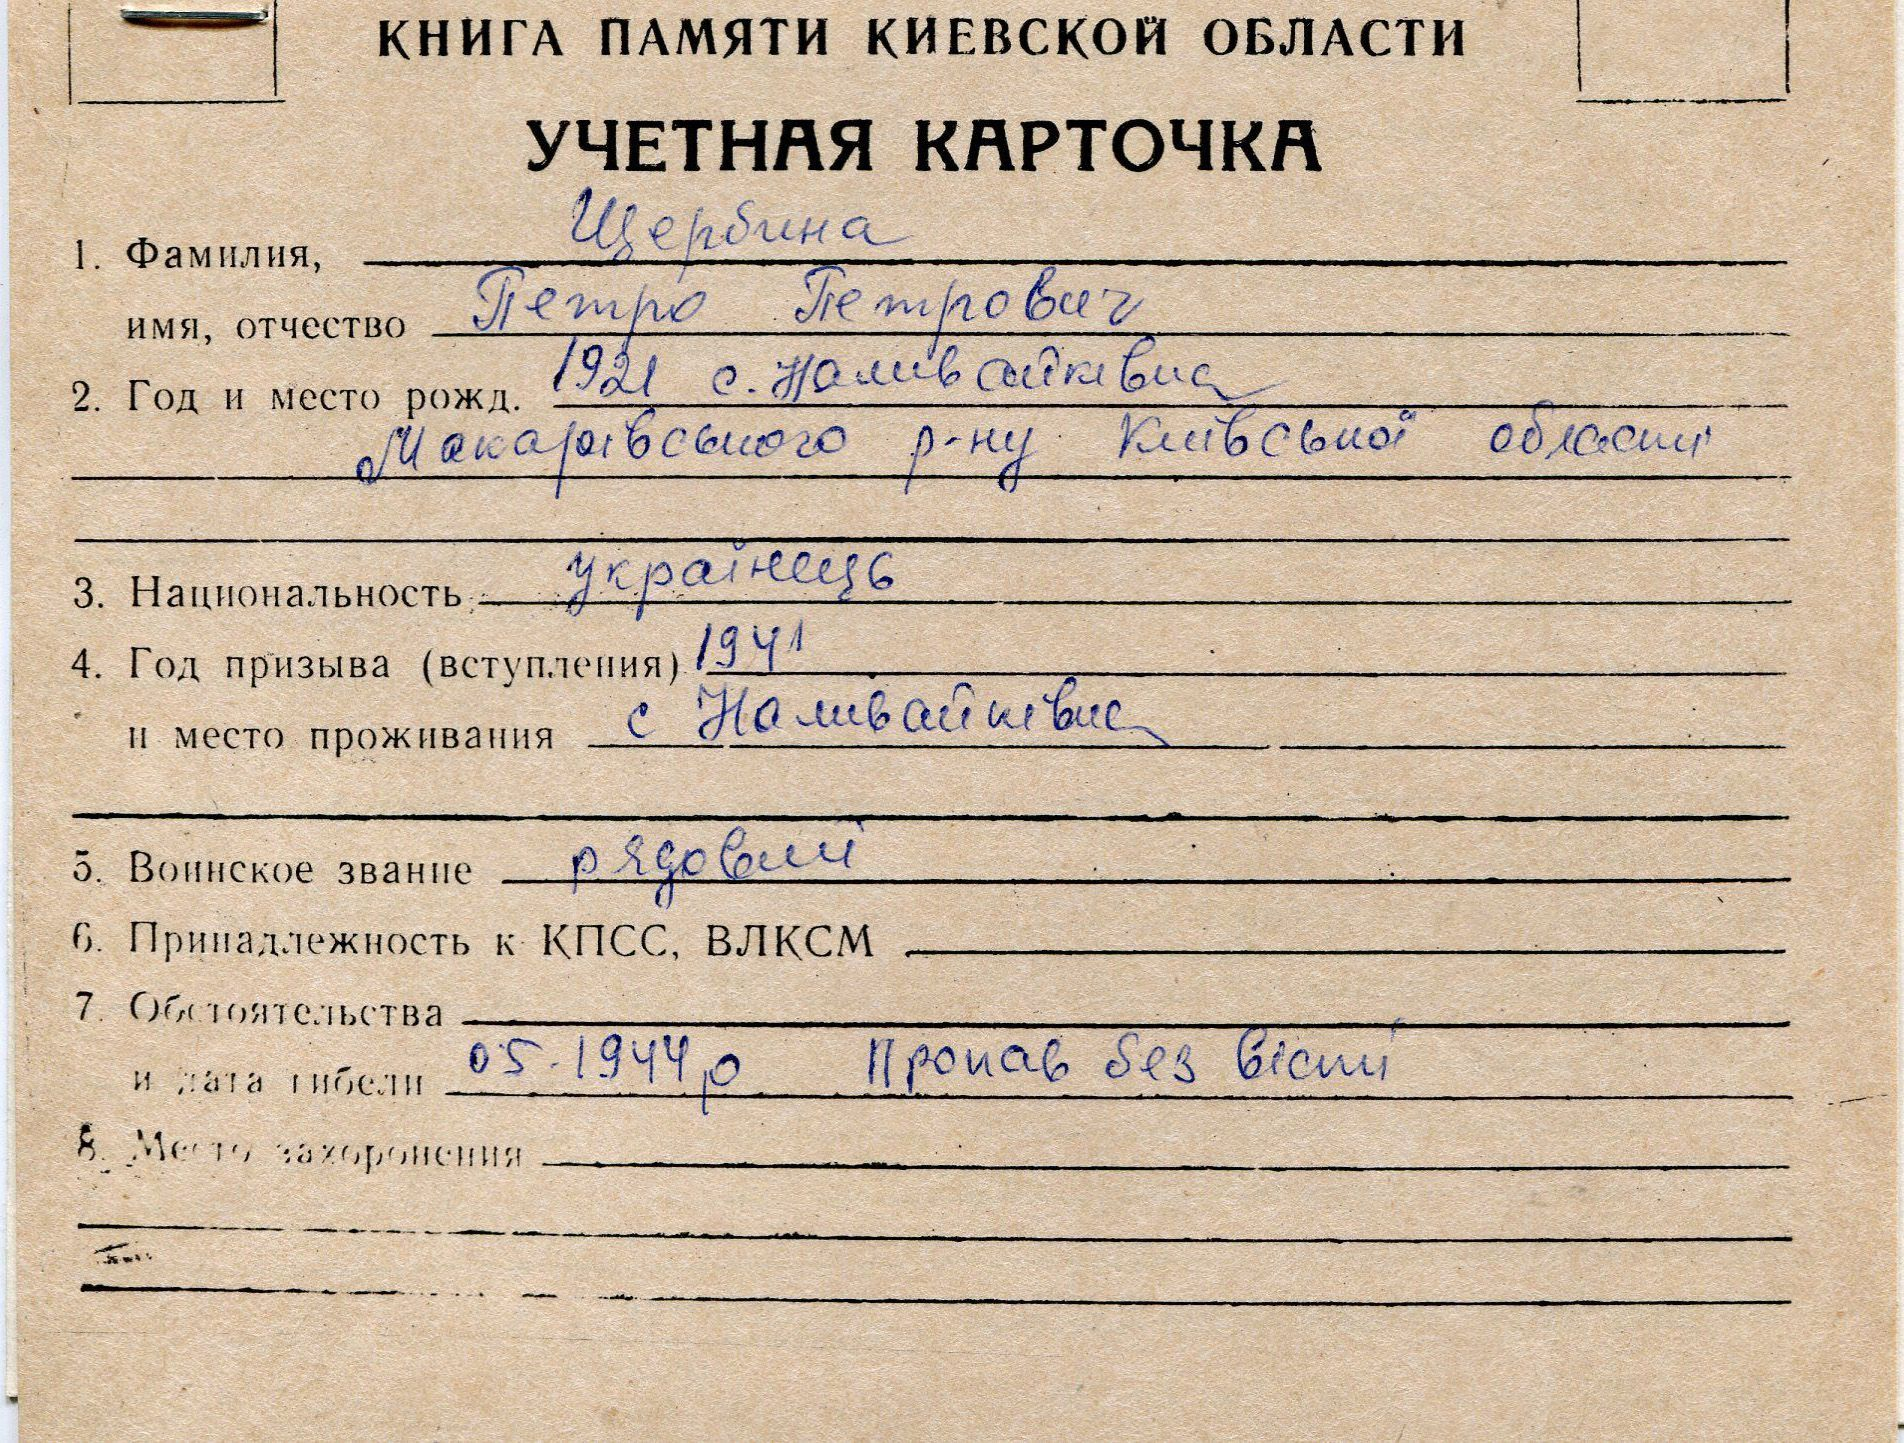 КНИГА ПАМЯТИ КИЕВСКОЙ ОБЛАСТИ
УЧЕТНАЯ КАРТОЧКА
1. Фамилия, Щербина
имя, отчество Петро Петрович
2. Год и место рожд. 1921 с. Наливайківка
Макарівського р-ну Київської області
3. Национальность українець
4. Год призыва (вступления) 1941
и место проживания с Наливайківка
5. Воинское звание рядовий
6. Принадлежность к КПСС, ВЛКСМ
7. Обстоятельства
и дата гибели 05.1944р Пропав без вісті
8. Место захоронения